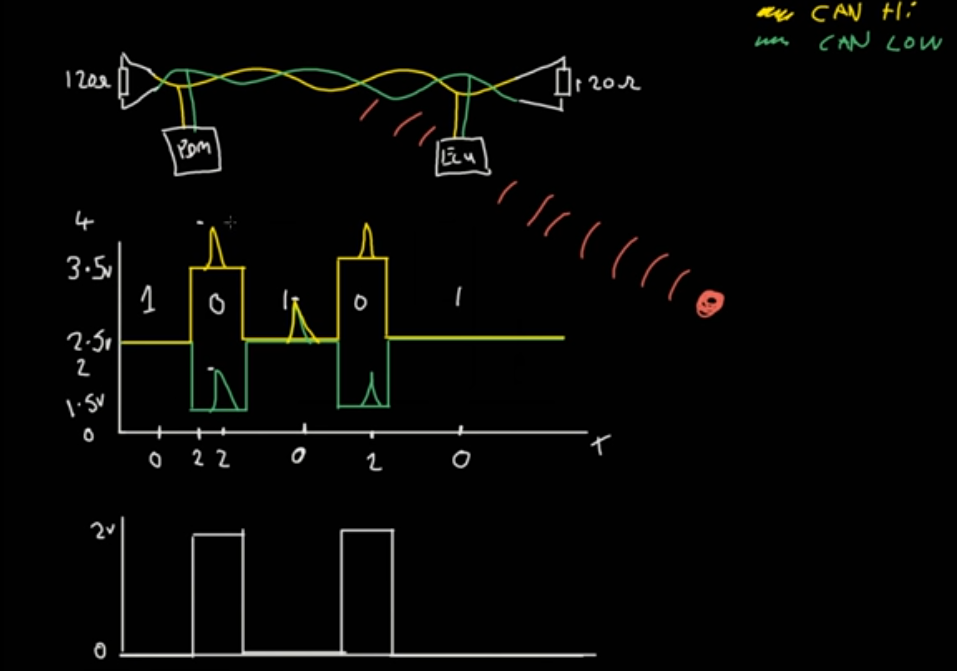 CAN Hi
CAN LOW
120Ω
120Ω
PDM
ECU
4
3.5v
1 0 1 0 1
2.5v
2
1.5v
0
0 2 2 0 2 0
T
2v
0